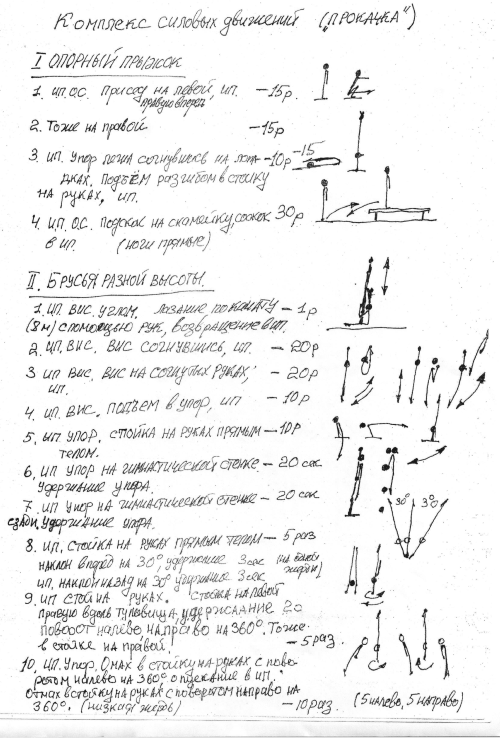 Комплекс силовых движений („ПРОКАЧКА")
I ОПОРНЫЙ ПРЫЖОК
1. И.П. О.С. Присед на левой, И.П. – 15 р.
правую вперед
2. Тоже на правой – 15 р
3. ИП. Упор лежа согнувшись на лопа- – 10 р – 15
дках. Подъём разгибом в стойку
на руках, ИП.
4. И.П. О.С. Подскок на скамейку, соскок 30 р
в ип. (ноги прямые)
II. БРУСЬЯ РАЗНОЙ ВЫСОТЫ.
1. ИП. ВИС. УГЛОМ. Лазание по канату – 1 р
(8м) с помощью рук, возвращение в ИП.
2. ИП. ВИС. ВИС СОГНУВШИСЬ, ИП. – 20 р
3 ИП ВИС. ВИС НА СОГНУТЫХ РУКАХ, – 20 р
ИП.
4. ИП. ВИС, ПОДЪЕМ В УПОР, ИП – 10 р
5. ИП УПОР, СТОЙКА НА РУКАХ ПРЯМЫМ – 10 р
телом.
6, ИП УПОР НА ГИМНАСТИЧЕСКОЙ СТЕНКЕ – 20 сек
Удержание упора.
7. ИП УПОР НА ГИМНАСТИЧЕСКОЙ СТЕНКЕ – 20 сек
сзади, Удержание упора.
30° 30
8. ИП, Стойка на руках прямым телом – 5 раз
наклон вперёд на 30°, удержание 3 сек
ИП, наклон назад на 30° удержание 3 сек
9. ИП СТОЙ НА РУКАХ. Стойка на левой
правую вдоль туловища, удержание 2с
поворот налево, направо на 360°. Тоже
в стойке на правой. – 5 раз.
10, ИП. Упор, Отмах в стойку на руках с пово-
ротом налево на 360° опускание в ИП.
Отмах в стойку на руках с поворотом направо на
360°. (низкая жердь) – 10 раз. (5 налево, 5 направо)